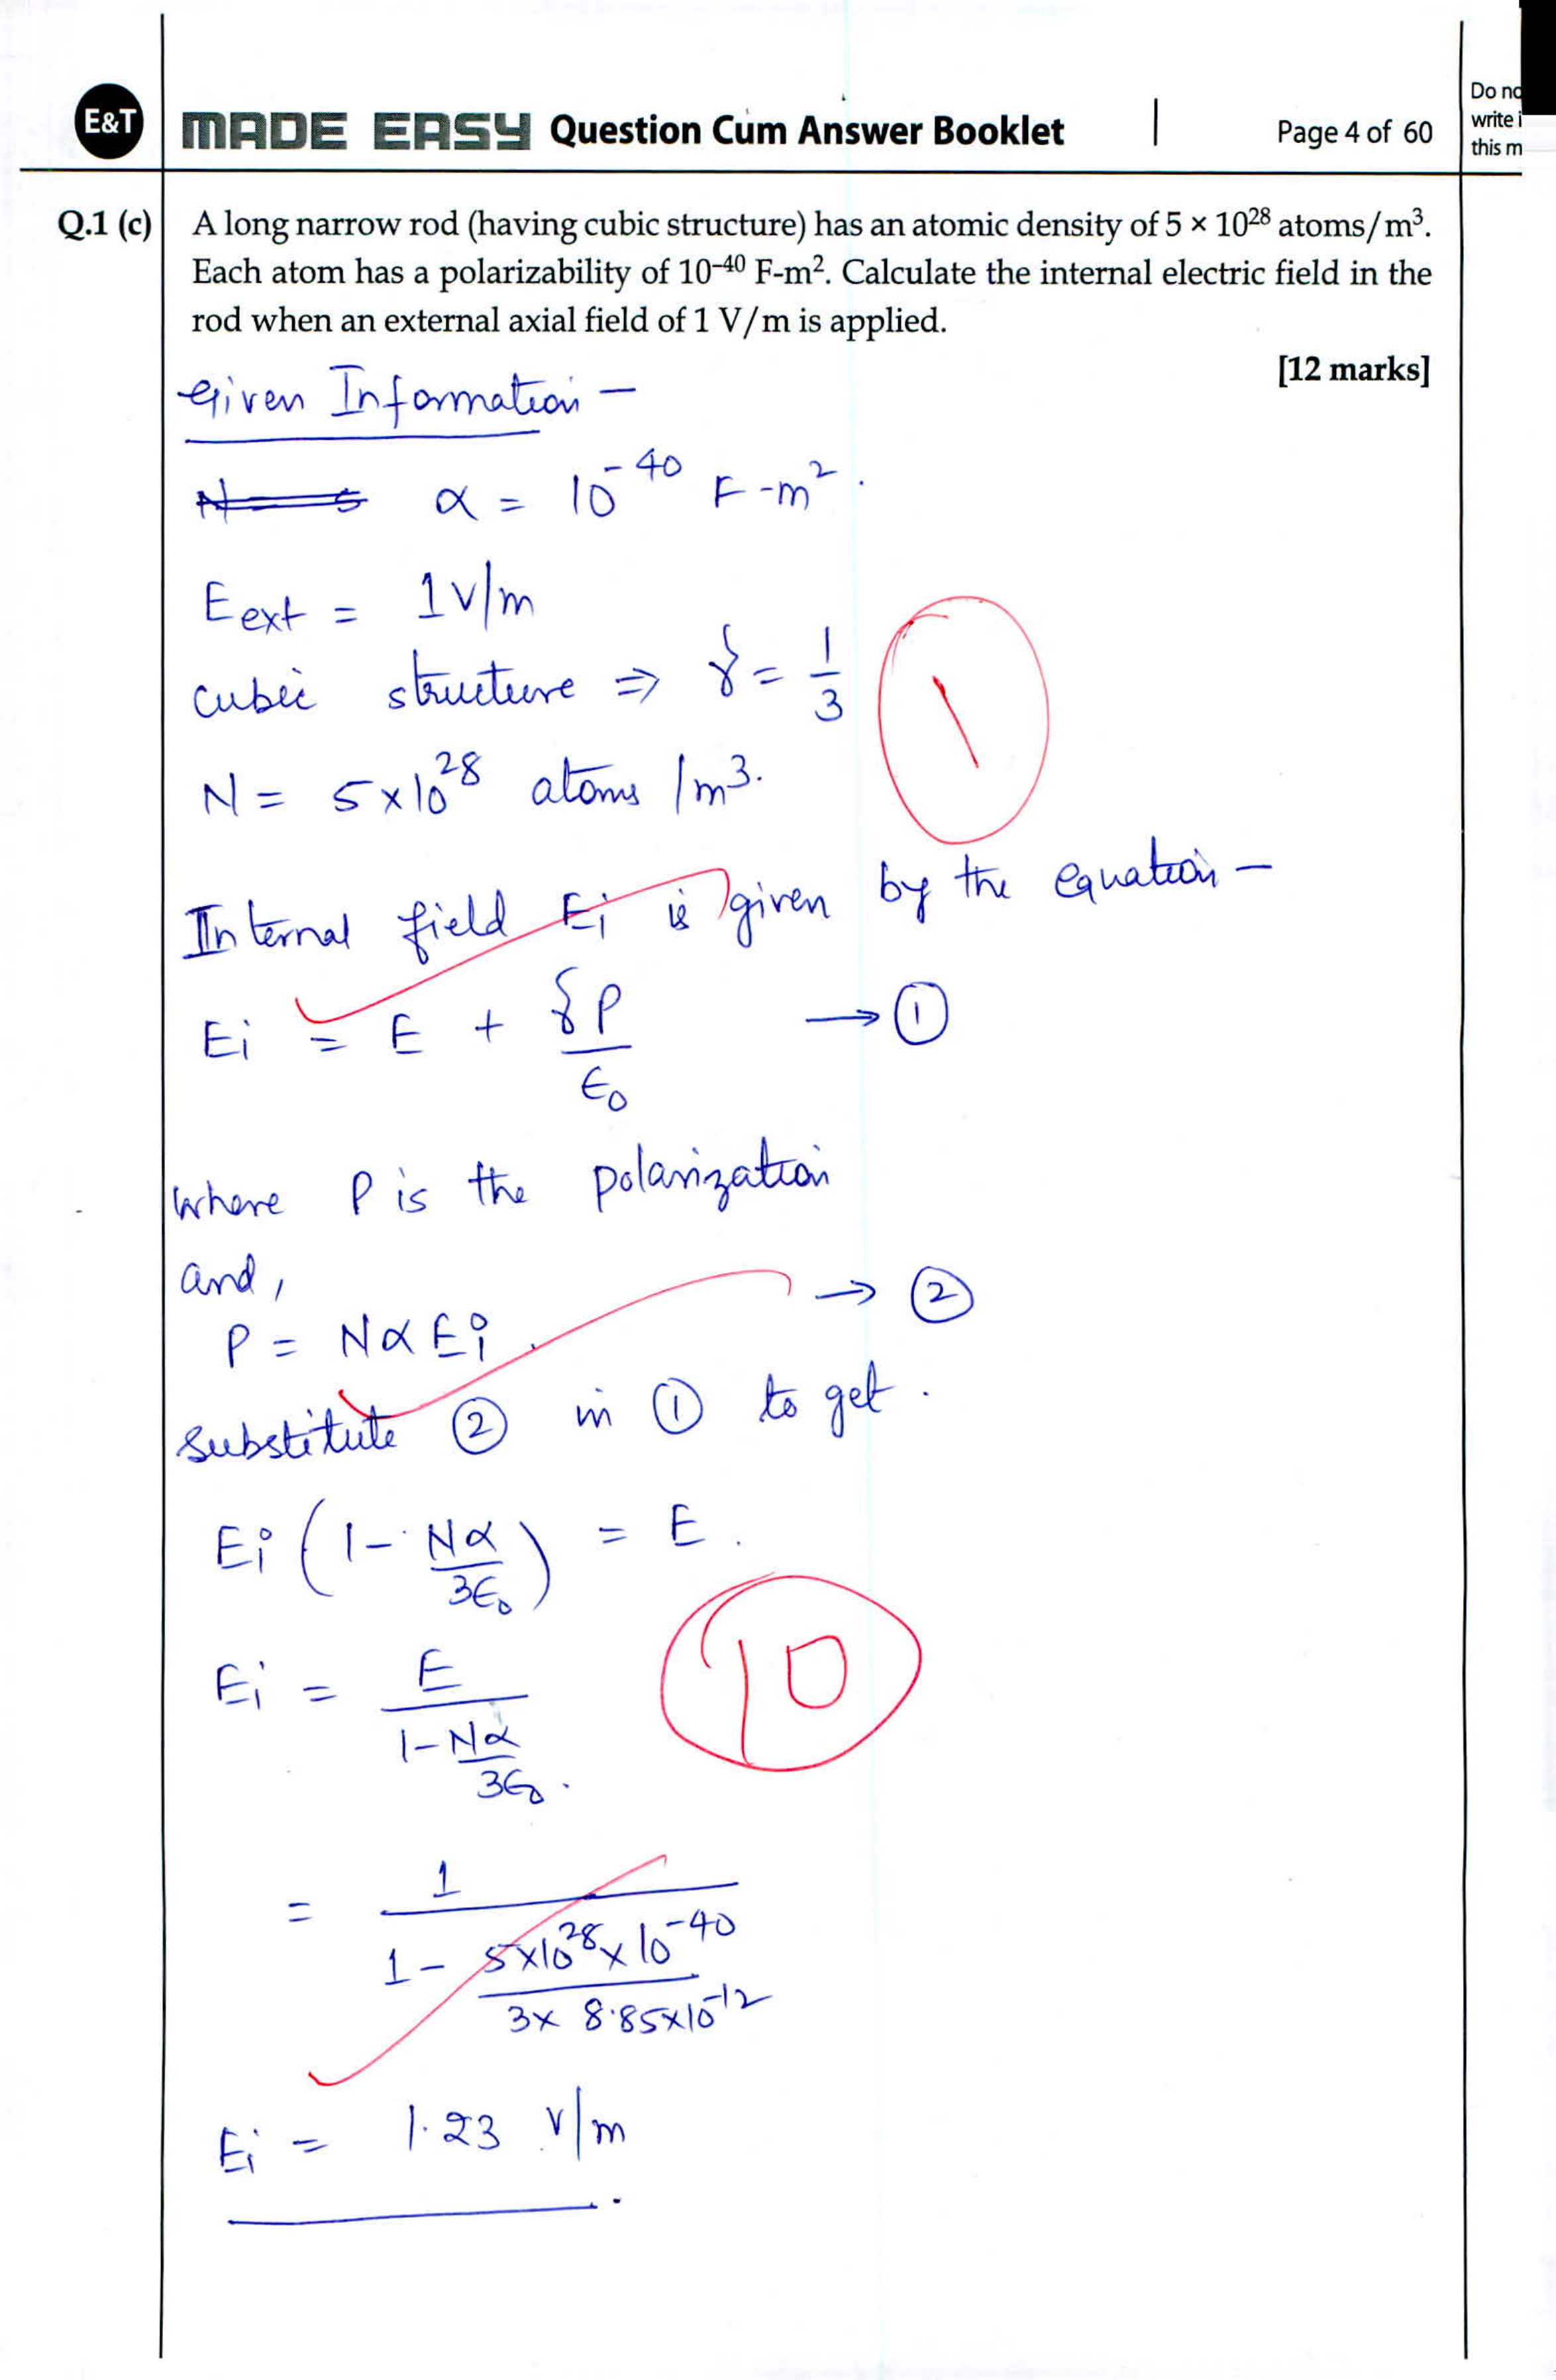 E&T
MADE EASY Question Cum Answer Booklet | Page 4 of 60
Do no
write i
this m
Q.1 (c) A long narrow rod (having cubic structure) has an atomic density of 5 × 10²⁸ atoms/m³.
Each atom has a polarizability of 10⁻⁴⁰ F-m². Calculate the internal electric field in the
rod when an external axial field of 1 V/m is applied.
[12 marks]
Given Information –
α = 10⁻⁴⁰ F-m².
E ext = 1 V/m
cubic structure ⇒ γ = 1/3
1
N = 5×10²⁸ atoms /m³.
Internal field Ei is given by the equation –
Ei = E + γP/ε₀ → ①
where P is the polarization
and,
P = NαEi. → ②
substitute ② in ① to get.
Ei (1 - Nα/3ε₀) = E.
10
Ei = E / (1 - Nα/3ε₀).
= 1 / (1 - 5×10²⁸×10⁻⁴⁰ / 3× 8.85×10⁻¹²)
Ei = 1.23 V/m